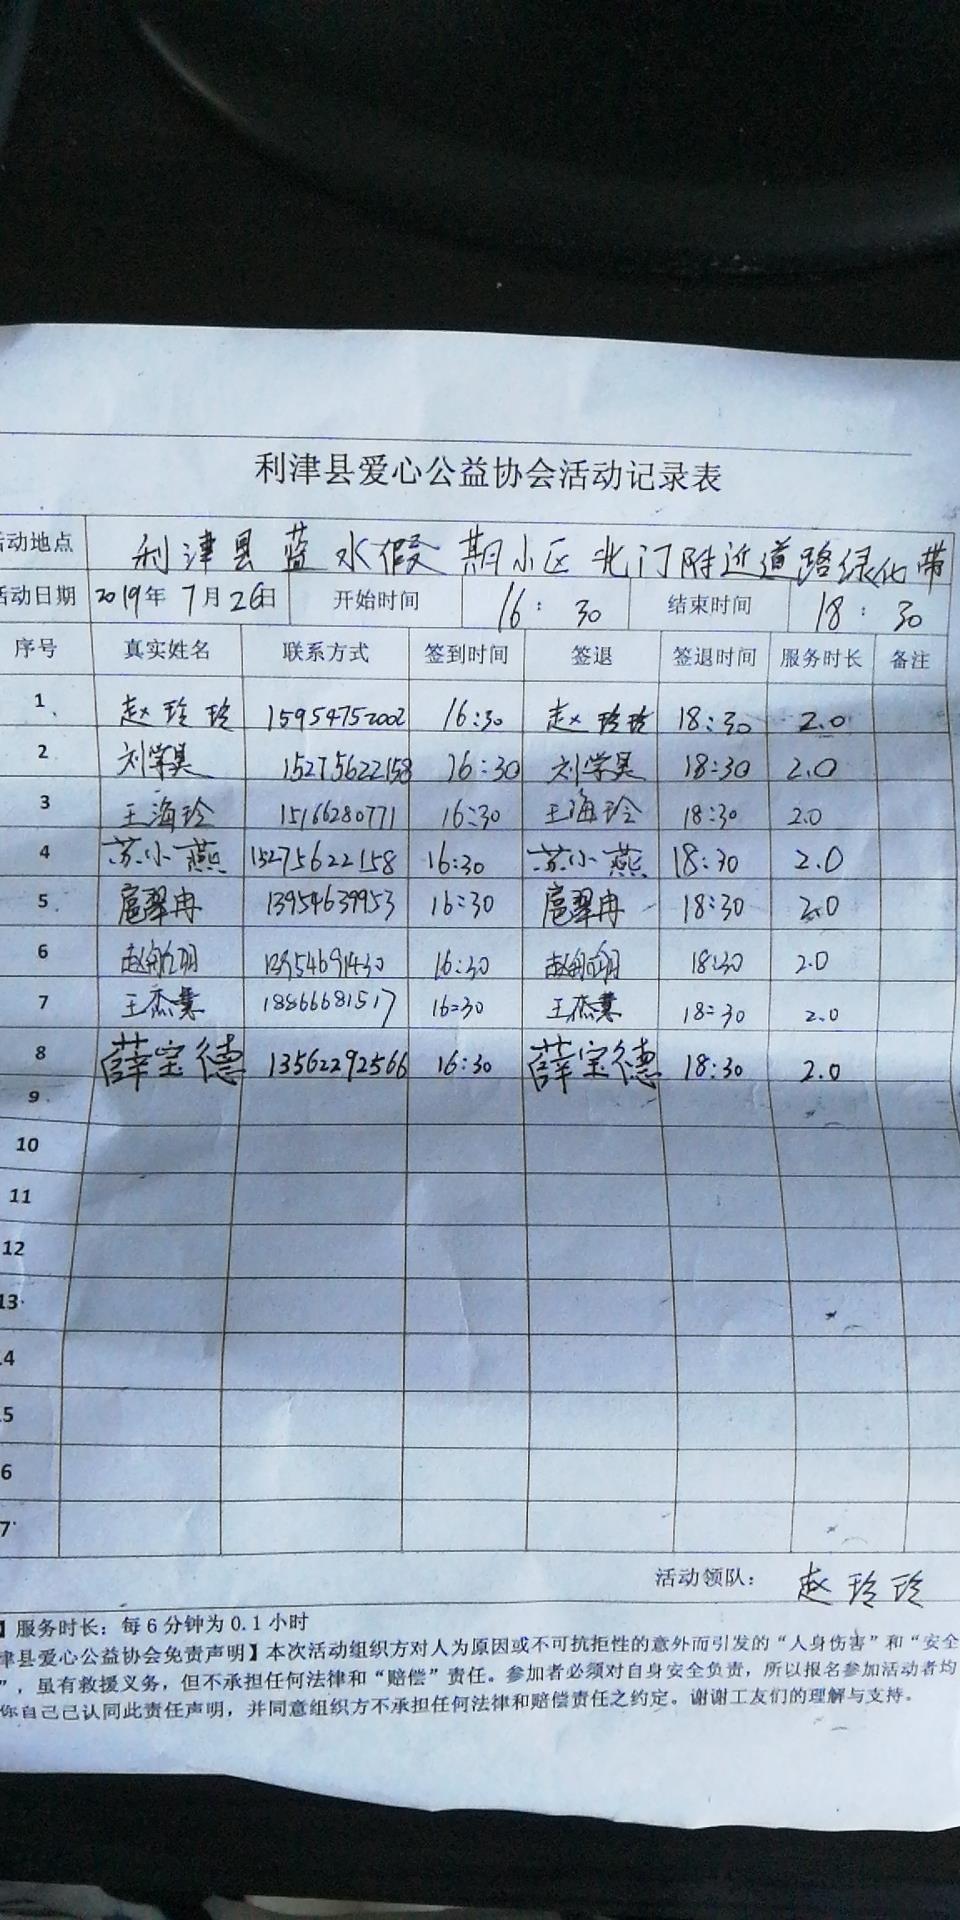 利津县爱心公益协会活动记录表
动地点 利津县蓝水假期小区北门附近道路绿化带
活动日期 2019年7月26日 开始时间 16:30 结束时间 18:30
序号 真实姓名 联系方式 签到时间 签退 签退时间 服务时长 备注
1 赵玲玲 15954752002 16:30 赵玲玲 18:30 2.0
2 刘学昊 15275622158 16:30 刘学昊 18:30 2.0
3 王海玲 15166280771 16:30 王海玲 18:30 2.0
4 苏小燕 15275622158 16:30 苏小燕 18:30 2.0
5 扈翠冉 13954639953 16:30 扈翠冉 18:30 2.0
6 赵航翊 13954691430 16:30 赵航翊 18:30 2.0
7 王杰慧 18866681517 16:30 王杰慧 18:30 2.0
8 薛宝德 13562292566 16:30 薛宝德 18:30 2.0
9
10
11
12
13
4
5
6
7
活动领队: 赵玲玲
】服务时长：每6分钟为0.1小时
津县爱心公益协会免责声明】本次活动组织方对人为原因或不可抗拒性的意外而引发的“人身伤害”和“安全
”，虽有救援义务，但不承担任何法律和“赔偿”责任。参加者必须对自身安全负责，所以报名参加活动者均
你自己已认同此责任声明，并同意组织方不承担任何法律和赔偿责任之约定。谢谢工友们的理解与支持。